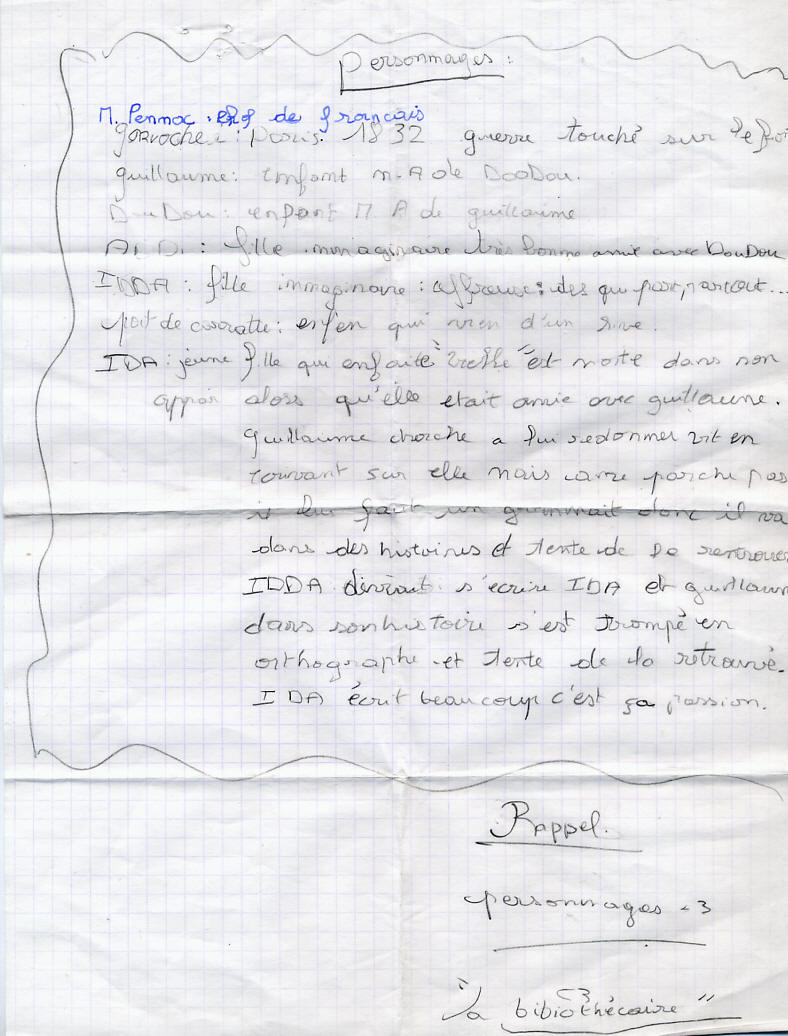 Personnages :
M. Pennac : chef de français
gavroche : Paris. 1832 guerre touché sur le
guillaume: enfant m.A de DouDou.
DouDou : enfant M A de guillaume
fille immaginaire très bonne amie avec DouDou
IDDA : fille immaginaire : affreuse : des qui part, partout...
poil de carotte : enfen qui vien d'un rive.
IDA : jeune fille qui enfaite " " est morte dans son
appar alors qu'elle etait amie avec guillaume.
guillaume cherche a lui redonner vit en
sur elle mais marche pas
il lui faut un donc il va
dans des histoires et tente de la retrouver
IDDA devrait s'ecrire IDA et guillaum
dans sonhistoire s'est trompé en
orthographe et tente de la retrouvé.
IDA écrit beaucoup c'est ça passion.
Rappel.
personnages <3
"la bibiothécaire"